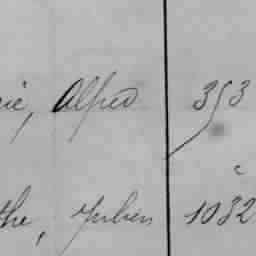 rie, Alfred 353
the, Julien 1032